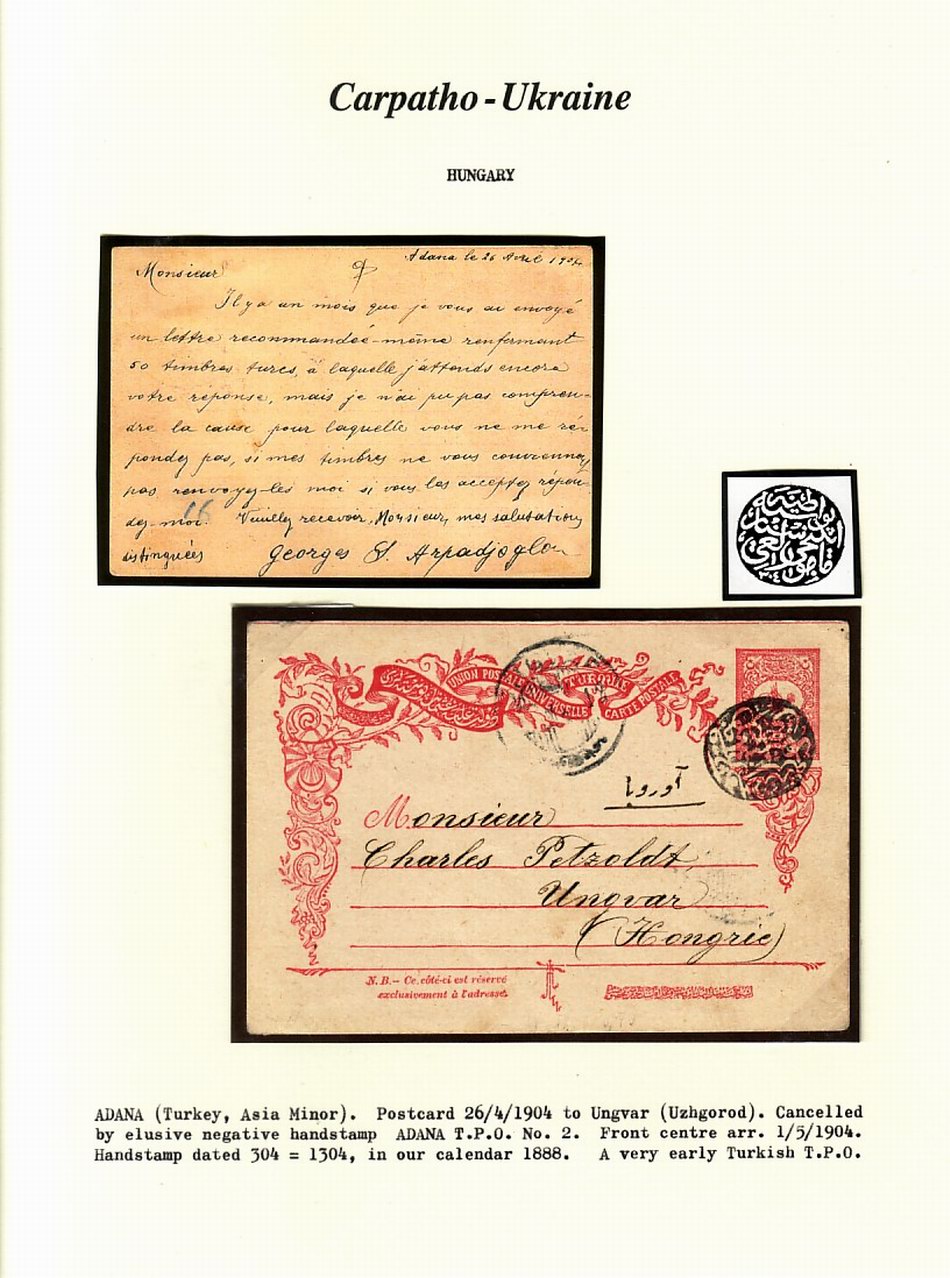 Carpatho-Ukraine
HUNGARY
Adana le 26 Avril 1904
Monsieur
Il y a un mois que je vous ai envoyé
un lettre recommandée-même renfermant
50 timbres turcs, à laquelle j'attends encore
votre réponse, mais je n'ai pu pas compren-
dre la cause pour laquelle vous ne me ré-
pondez pas, si mes timbres ne vous conviennez
pas renvoyez-les moi si vous les acceptez répon-
dez-moi. Veuillez recevoir, Monsieur, mes salutations
distinguées Georges S. Arpadjoglou
16
٣٠٤
UNION POSTALE UNIVERSELLE TURQUIE
CARTE POSTALE
آوروپا
Monsieur
Charles Petzoldt
Ungvar
(Hongrie)
N.B.- Ce côté-ci est réservé
exclusivement à l'adresse.
ADANA (Turkey, Asia Minor). Postcard 26/4/1904 to Ungvar (Uzhgorod). Cancelled
by elusive negative handstamp ADANA T.P.O. No. 2. Front centre arr. 1/5/1904.
Handstamp dated 304 = 1304, in our calendar 1888. A very early Turkish T.P.O.